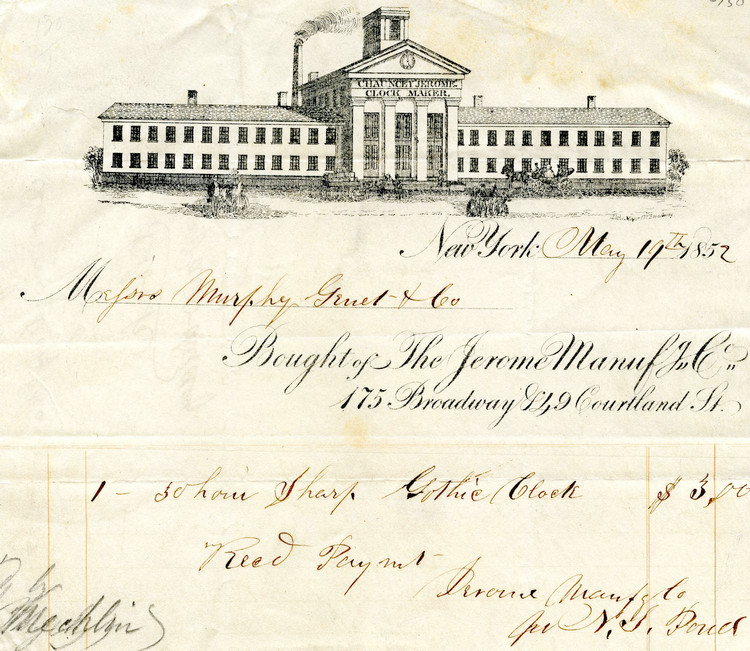 CHAUNCEY JEROME.
CLOCK MAKER.
New York May 19th 1852
Messrs Murphy Gruet & Co
Bought of The Jerome Manufg. Co.
175 Broadway & 49 Courtland St.
1 - 30 hour Sharp Gothic Clock $3,00
Recd Paymt
Jerome Manufg Co
per N. S. Pond
by
Mechlin